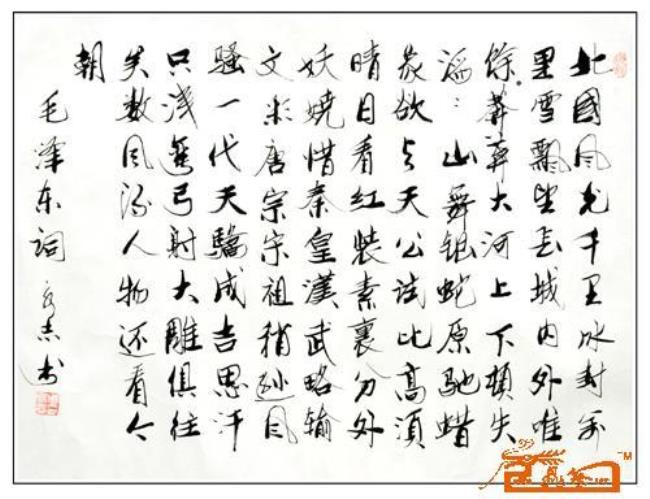 北國风光千里冰封万
里雪飄望长城内外唯
馀莽莽大河上下頓失
滔〻山舞银蛇原驰蜡
象欲与天公试比高須
晴日看红装素裹分外
妖娆惜秦皇漢武略输
文采唐宗宋祖稍逊风
骚一代天驕成吉思汗
只识弯弓射大雕俱往
矣数风流人物还看今
朝
毛泽东词 志书